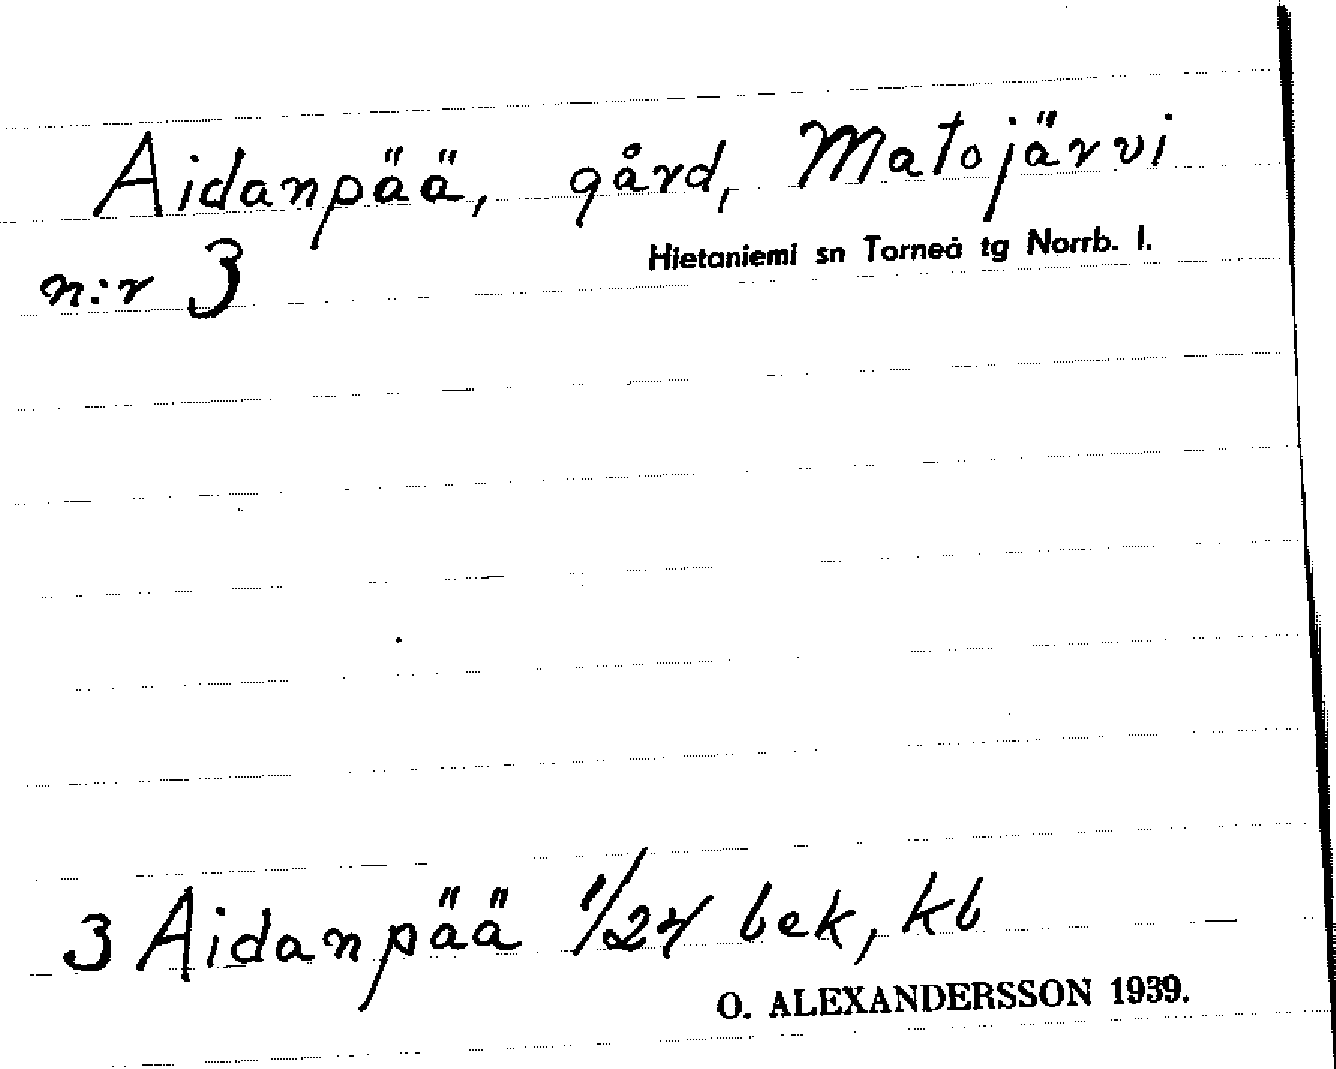 Aidanpää, gård, Matojärvi
n:r 3
Hietaniemi sn Torneå tg Norrb. l.
3 Aidanpää 1/24 bek, kb
O. ALEXANDERSSON 1939.